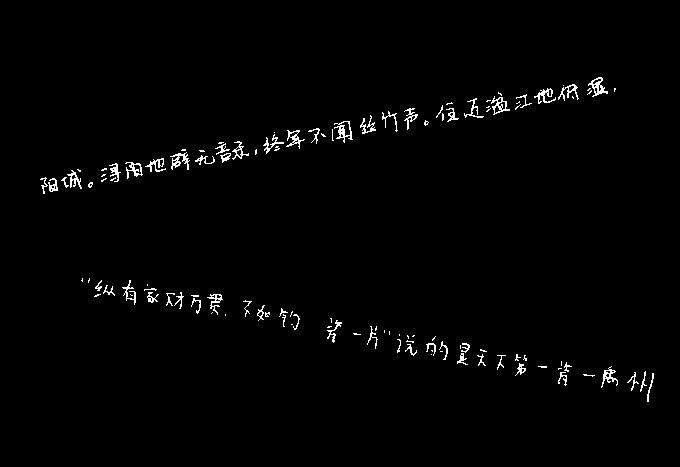 阳城。浔阳地辟无音乐,终年不闻丝竹声。住近湓江地低湿,
“纵有家财万贯,不如钧瓷一片”说的是天下第一瓷一禹州